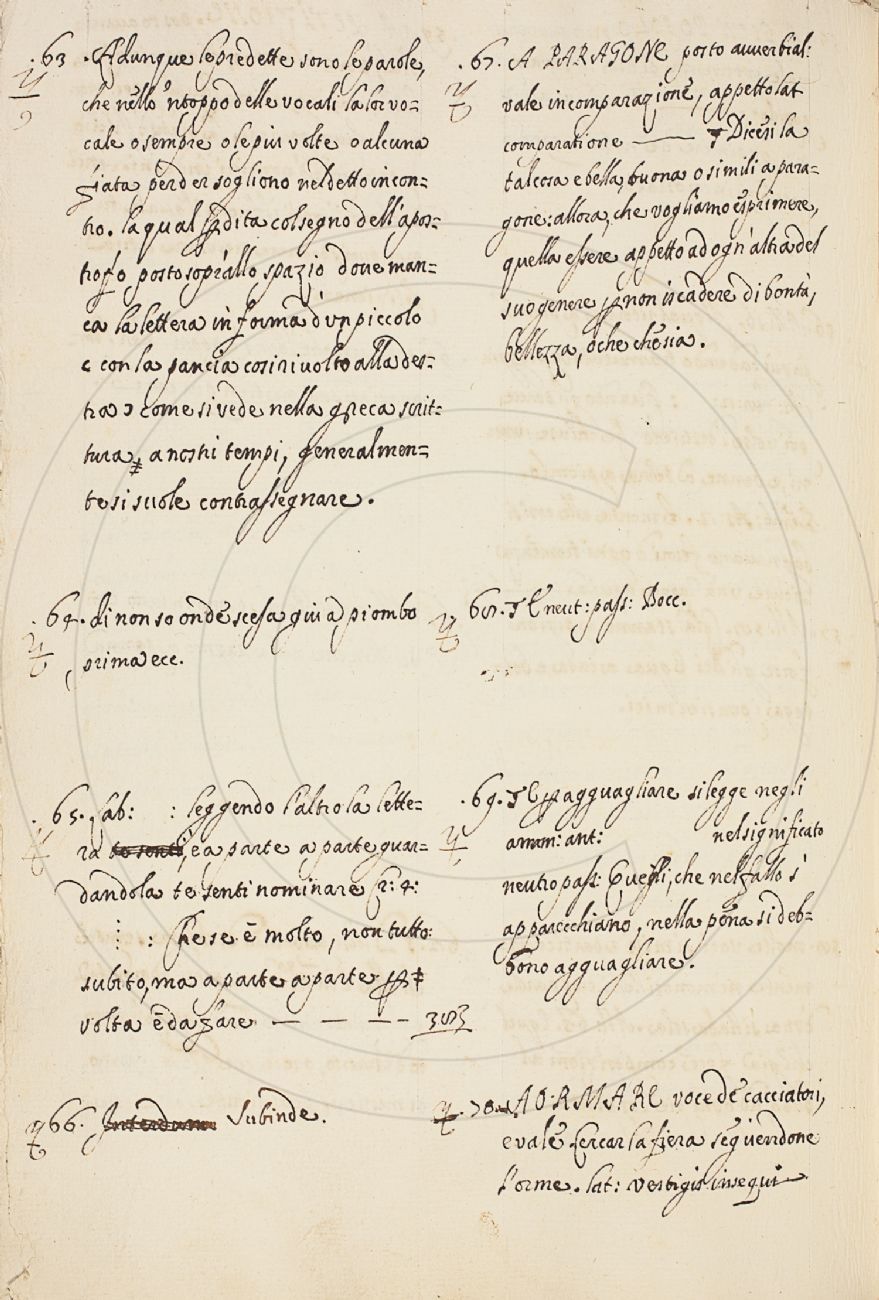 .63 . Adunque le predette sono le parole,
che nello 'ntoppo delle vocali la lor vo=
cale o sempre o le piu volte o alcuna
fiata perder sogliono nel detto incon=
tro. la qual pdita col segno dell'apos=
trofo posto sopr'allo spazio dove man=
ca la lettera in forma d'un piccolo
c con la pancia cosi rivolto alla des=
tra ɔ come si vede nella greca scrit=
tura, a nostri tempi, generalmen=
te si suole contrassegnare.
.64. di non so onde scesa giu a piombo
prima ecc.
. 65. Lab: : leggendo l'altro la lette=
ra te senti, e a parte a parte guar=
dandola te senti nominare
: Che se è molto, non tutto:
subito, ma a parte a parte
volta è da fare — — — —
66. Interdum Subinde.
.67. A PARAGONE posto avverbial:
vale in comparazione, appetto lat
comparatione —— Dicesi la
tal cosa e bella, buona o simili a para=
gone: allora, che vogliamo esprimere,
quella essere appetto ad ogn'altra del
suo genere p non iscadere di bontà,
bellezza, o che che sia.
68. neut: pass: Bocc.
.69. agguagliare si legge negli
amm: ant: nel significato
neutro pass: Quelli, che nel fallo s'
apparecchiano, nella pena si deb=
bono agguagliare.
.70. AORMARE voce de cacciatori,
e vale Cercar la fiera seguendone
l'orme. lat: vestigiis insequi